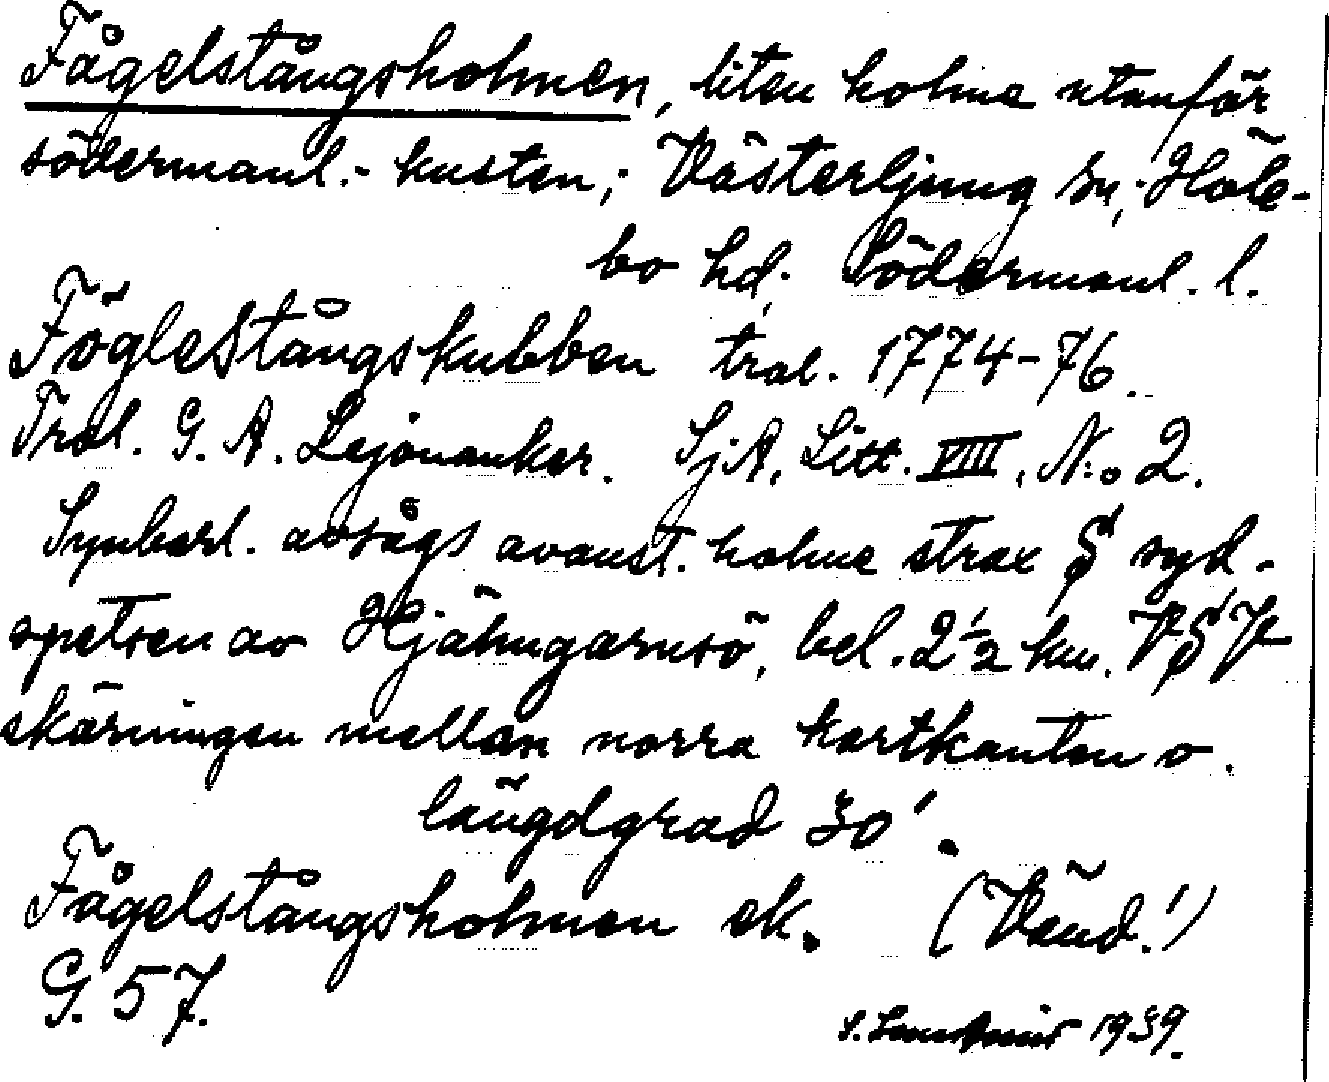 Fågelstångsholmen, liten holme utanför
södermanl.- kusten; Västerljung sn, Höle-
bo hd; Södermanl. l.
Fögleståugskubben tral. 1774-76.
Tral. G. A. Lejonanker. SjA, Litt. VIIII, N:o 2.
Synbarl. avsågs avanst. holme strax S syd-
spetsen av Hjälmgarnsö, bel. 2 1/2 km. VSV
skärningen mellan norra kartkanten o.
längdgrad 30'.
Fågelstångsholmen ek. (Vänd!)
G. 57.
1939.